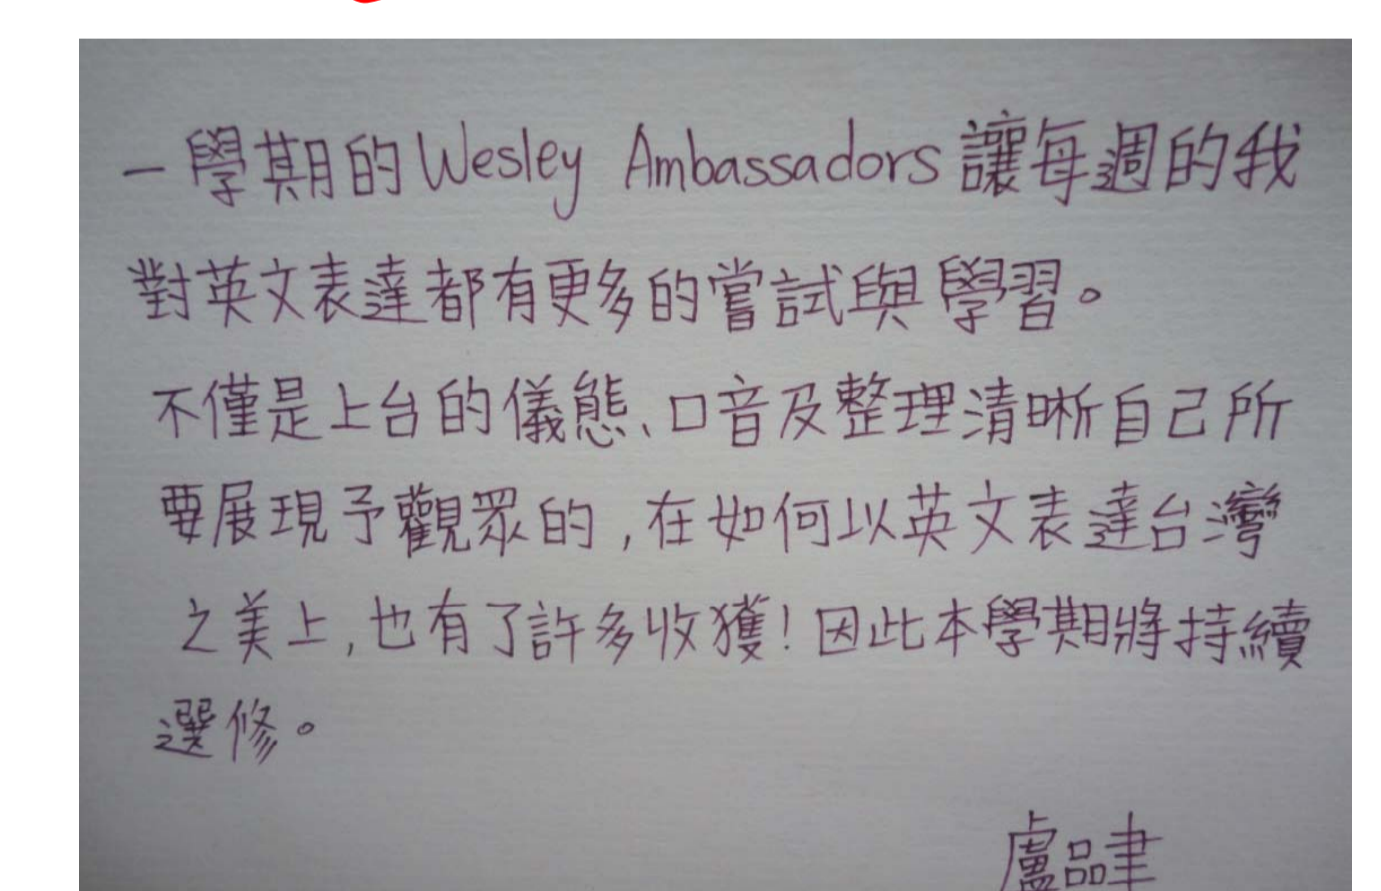 一學期的Wesley Ambassadors讓每週的我
對英文表達都有更多的嘗試與學習。
不僅是上台的儀態、口音及整理清晰自己所
要展現予觀眾的,在如何以英文表達台灣
之美上,也有了許多收獲!因此本學期將持續
選修。
盧品聿